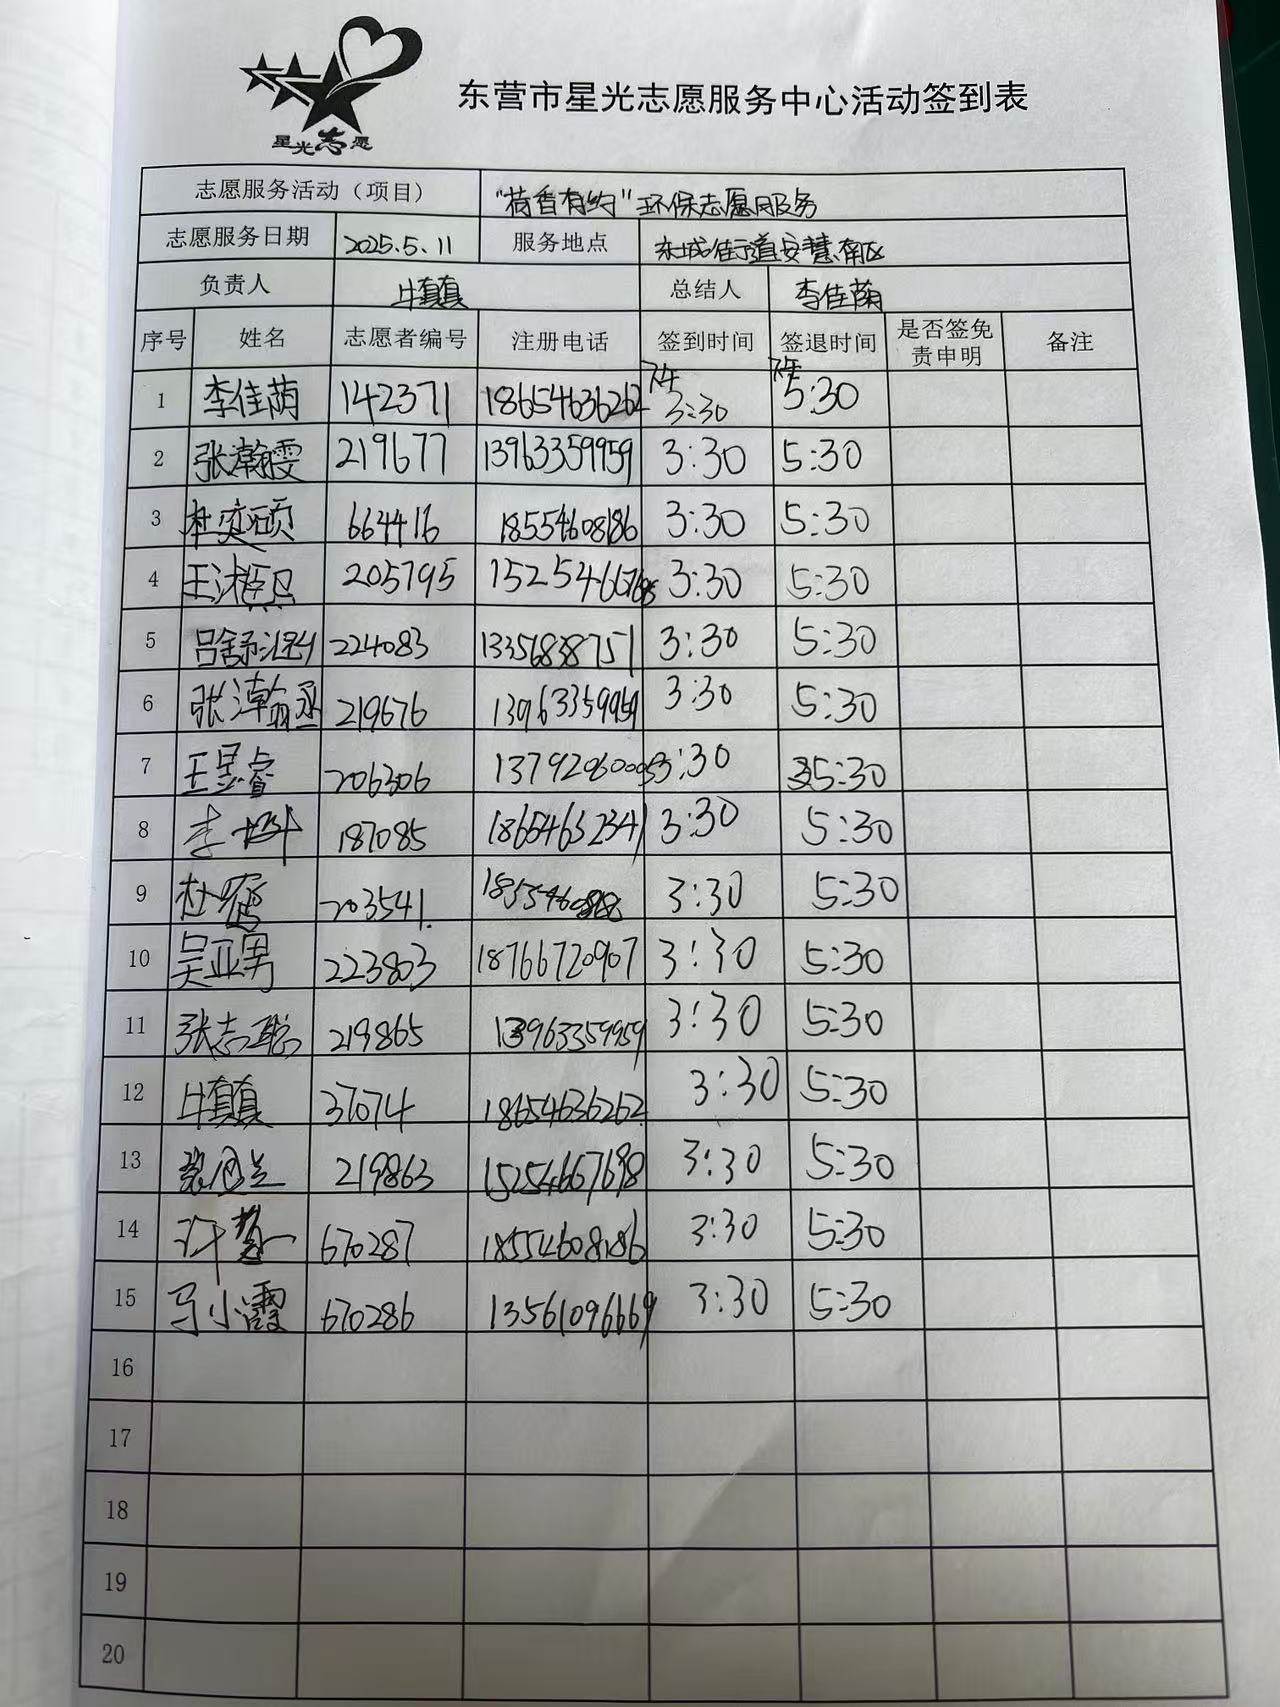 星光志愿
东营市星光志愿服务中心活动签到表
志愿服务活动（项目） “荷香有约”环保志愿服务
志愿服务日期 2025.5.11 服务地点 东城街道安慧南区
负责人 牛真真 总结人 李佳荫
序号 姓名 志愿者编号 注册电话 签到时间 签退时间 是否签免责申明 备注
1 李佳荫 142371 18654636262 下午3:30 下午5:30
2 张瀚雯 219677 13963359959 3:30 5:30
3 杜奕硕 664416 18554608186 3:30 5:30
4 205795 3:30 5:30
5 224083 13356838751 3:30 5:30
6 张瀚丞 219676 13963359959 3:30 5:30
7 王昱睿 206306 3:30 5:30
8 李 187085 18654632341 3:30 5:30
9 杜 203541 3:30 5:30
10 吴亚男 223803 18766720907 3:30 5:30
11 张志聪 219865 13963359959 3:30 5:30
12 牛真真 37074 18654636262 3:30 5:30
13 219863 15254667698 3:30 5:30
14 许 670287 18554608186 3:30 5:30
15 马小霞 670286 13561096669 3:30 5:30
16
17
18
19
20